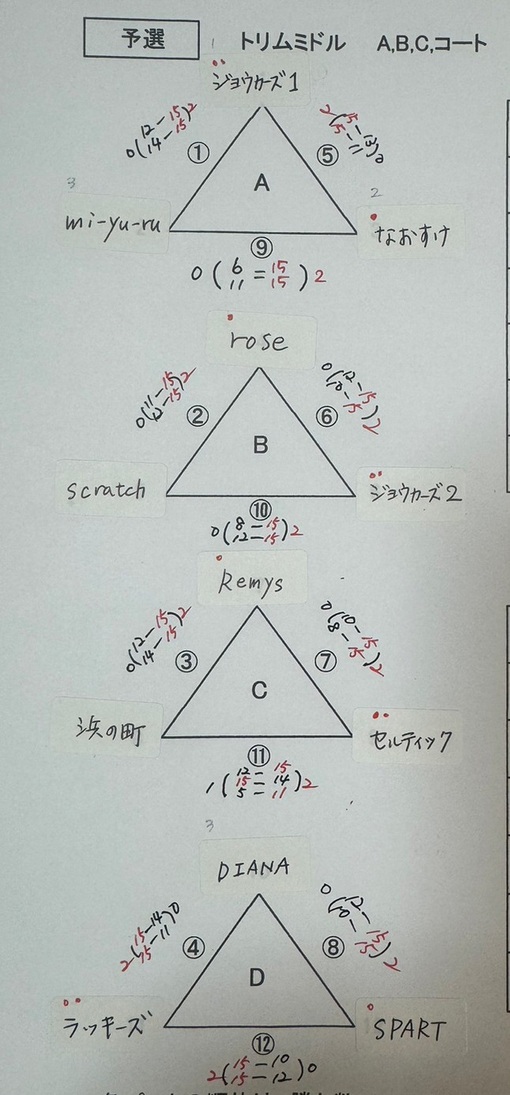 予選 トリムミドル A,B,C,コート
1
ジョウカーズ1
0(12-15 14-15)2
①
2(15-13 15-11)0
⑤
A
3
mi-yu-ru
2
なおすけ
⑨
0(6=15 11 15)2
rose
0(11-15 12-15)2
②
0(12-15 10-15)2
⑥
B
scratch
ジョウカーズ2
⑩
0(8-15 12-15)2
Remys
0(12-15 14-15)2
③
0(10-15 8-15)2
⑦
C
浜の町
セルティック
⑪
1(12-15 15-14 5-11)2
3
DIANA
2(15-14 15-11)0
④
0(12-15 10-15)2
⑧
D
ラッキーズ
SPART
⑫
2(15-10 15-12)0